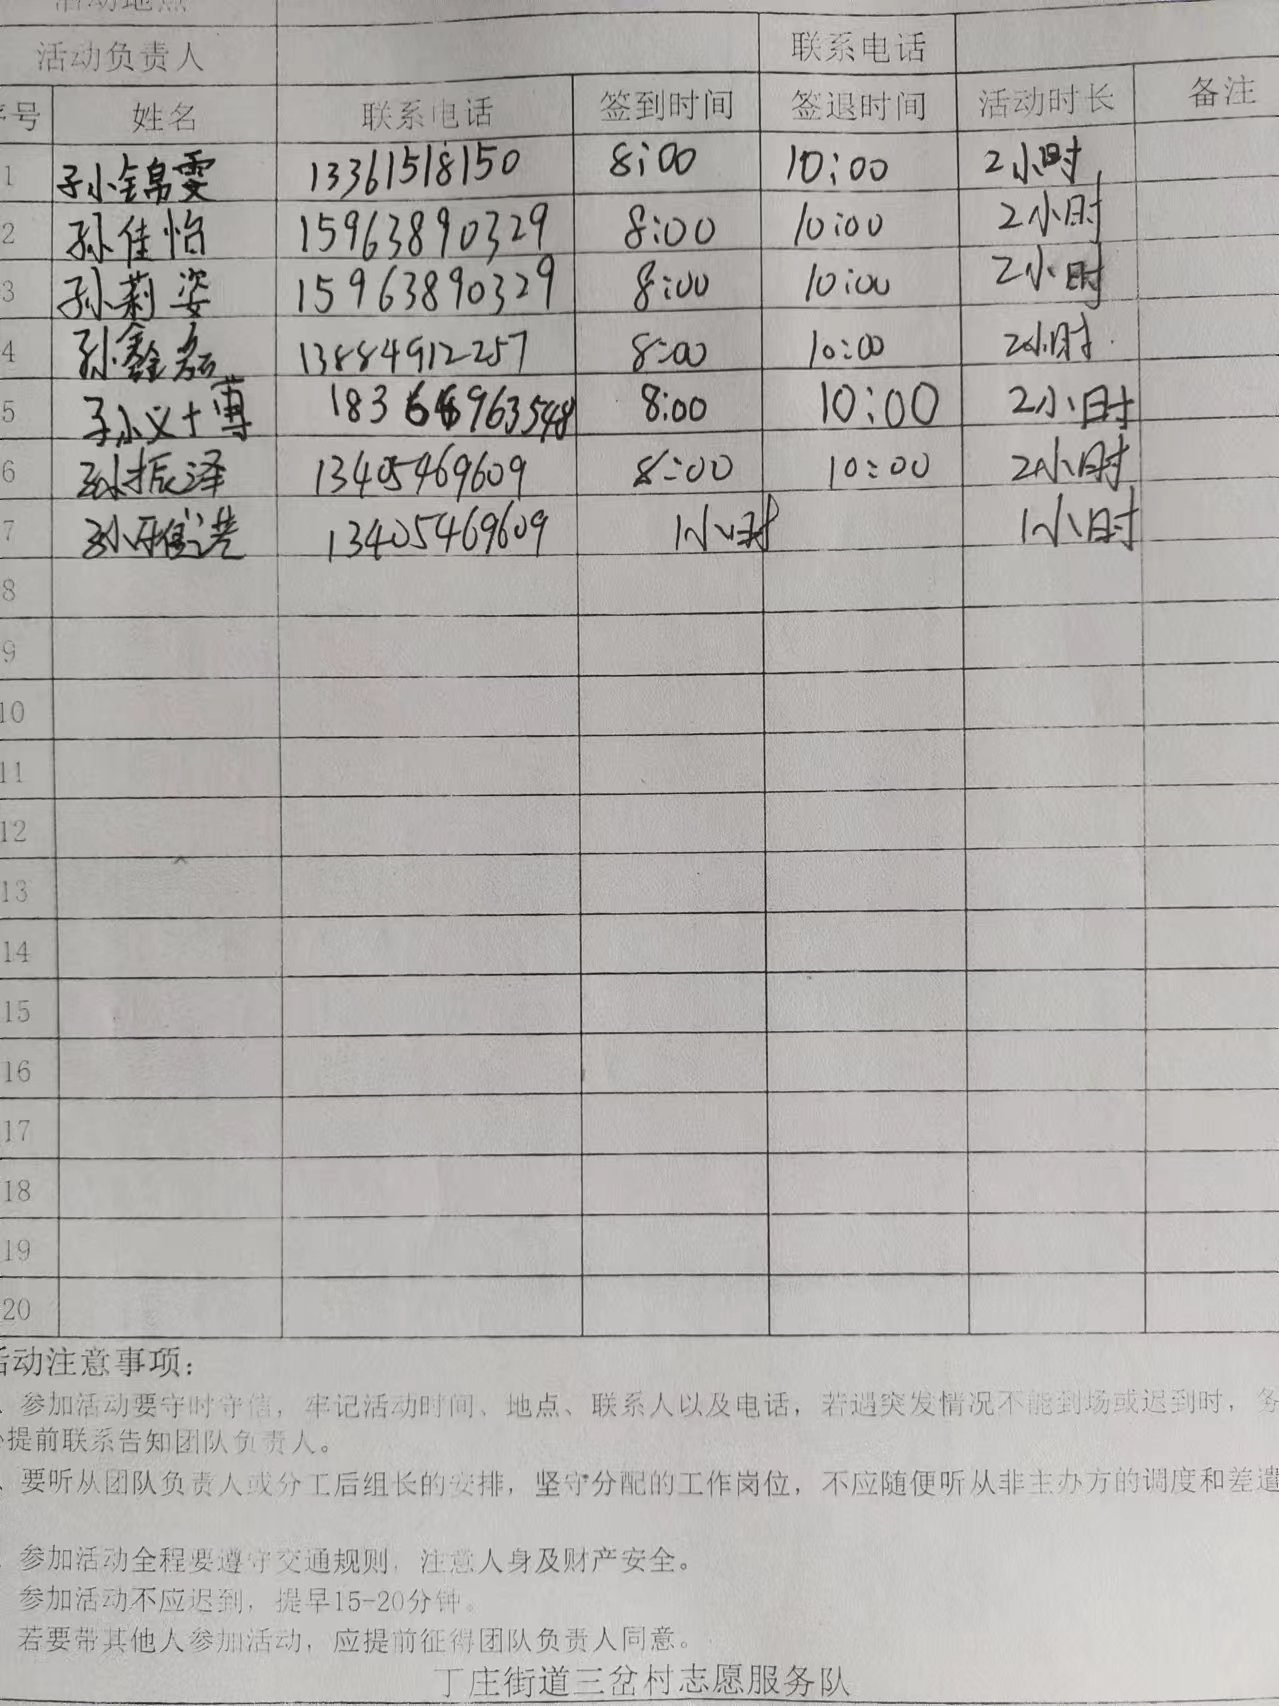 活动地点
活动负责人 联系电话
序号 姓名 联系电话 签到时间 签退时间 活动时长 备注
1 孙锦雯 13361518150 8:00 10:00 2小时
2 孙佳怡 15963890329 8:00 10:00 2小时
3 孙莉姿 15963890329 8:00 10:00 2小时
4 孙鑫磊 13884912257 8:00 10:00 2小时
5 孙义博 8:00 10:00 2小时
6 孙振泽 13405469609 8:00 10:00 2小时
7 孙 13405469609 1小时 1小时
8
9
10
11
12
13
14
15
16
17
18
19
20
活动注意事项:
参加活动要守时守信，牢记活动时间、地点、联系人以及电话，若遇突发情况不能到场或迟到时，务
必提前联系告知团队负责人。
、要听从团队负责人或分工后组长的安排，坚守分配的工作岗位，不应随便听从非主办方的调度和差遣
参加活动全程要遵守交通规则，注意人身及财产安全。
参加活动不应迟到，提早15-20分钟。
若要带其他人参加活动，应提前征得团队负责人同意。
丁庄街道三岔村志愿服务队